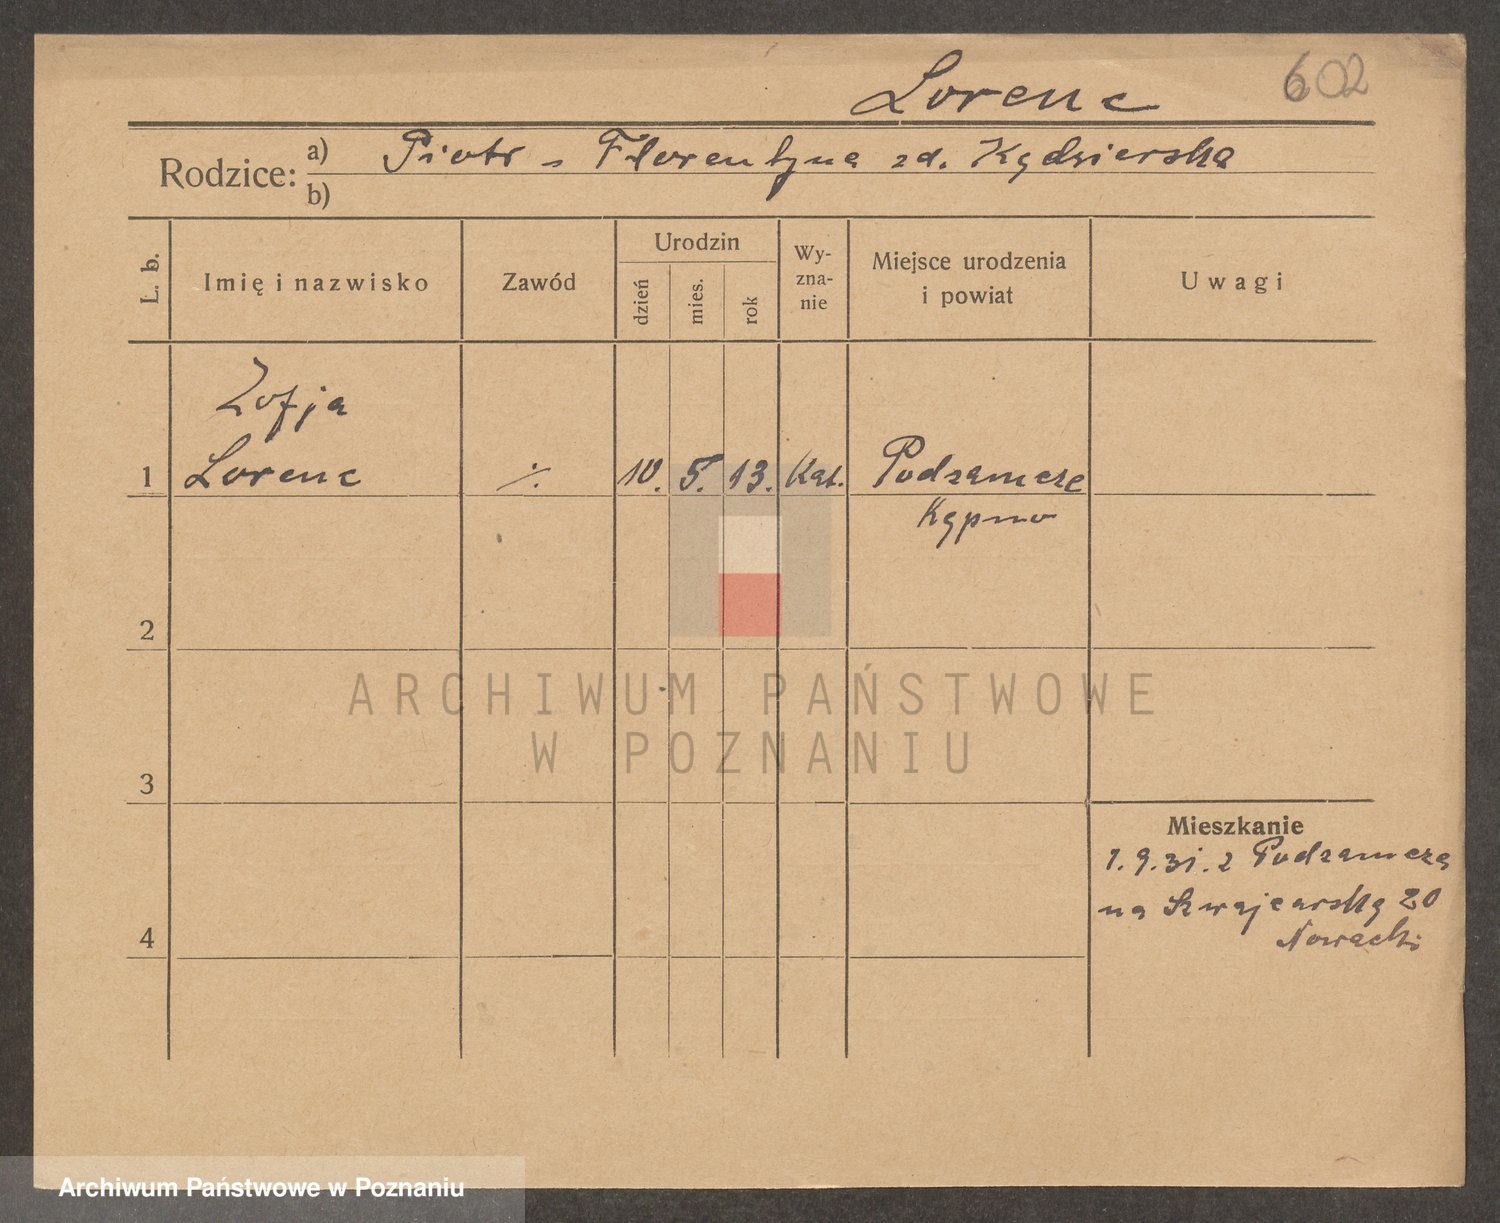 Lorenc
602
Rodzice: a) Piotr - Florentyna zd. Kędzierska
b)
L. b.
Imię i nazwisko
Zawód
Urodzin
dzień
mies.
rok
Wy-
zna-
nie
Miejsce urodzenia
i powiat
Uwagi
Zofja
1 Lorenc ·/. 10. 5. 13. Kat. Podzamcze
Kępno
2
ARCHIWUM PAŃSTWOWE
W POZNANIU
3
Mieszkanie
1.9.31. z Podzamcza
na Szwajcarską 20
Nowacki
4
Archiwum Państwowe w Poznaniu